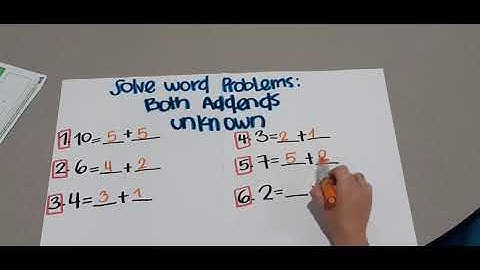 Solve word Problems:
Both Addends
unknown
1. 10=5+5
2. 6=4+2
3. 4=3+1
4. 3=2+1
5. 7=5+2
6. 2=__